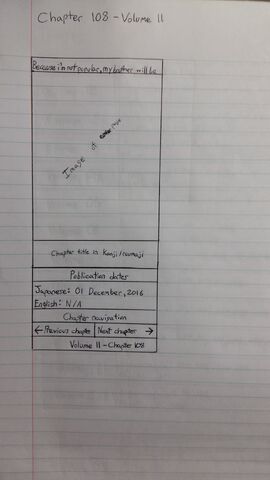 Chapter 108 - Volume 11
Because i'm not popular, my brother will be
Image of
Chapter title in Kanji/romaji
Publication dates
Japanese: 01 December, 2016
English: N/A
Chapter navigation
← Previous chapter Next chapter →
Volume 11 - Chapter 108